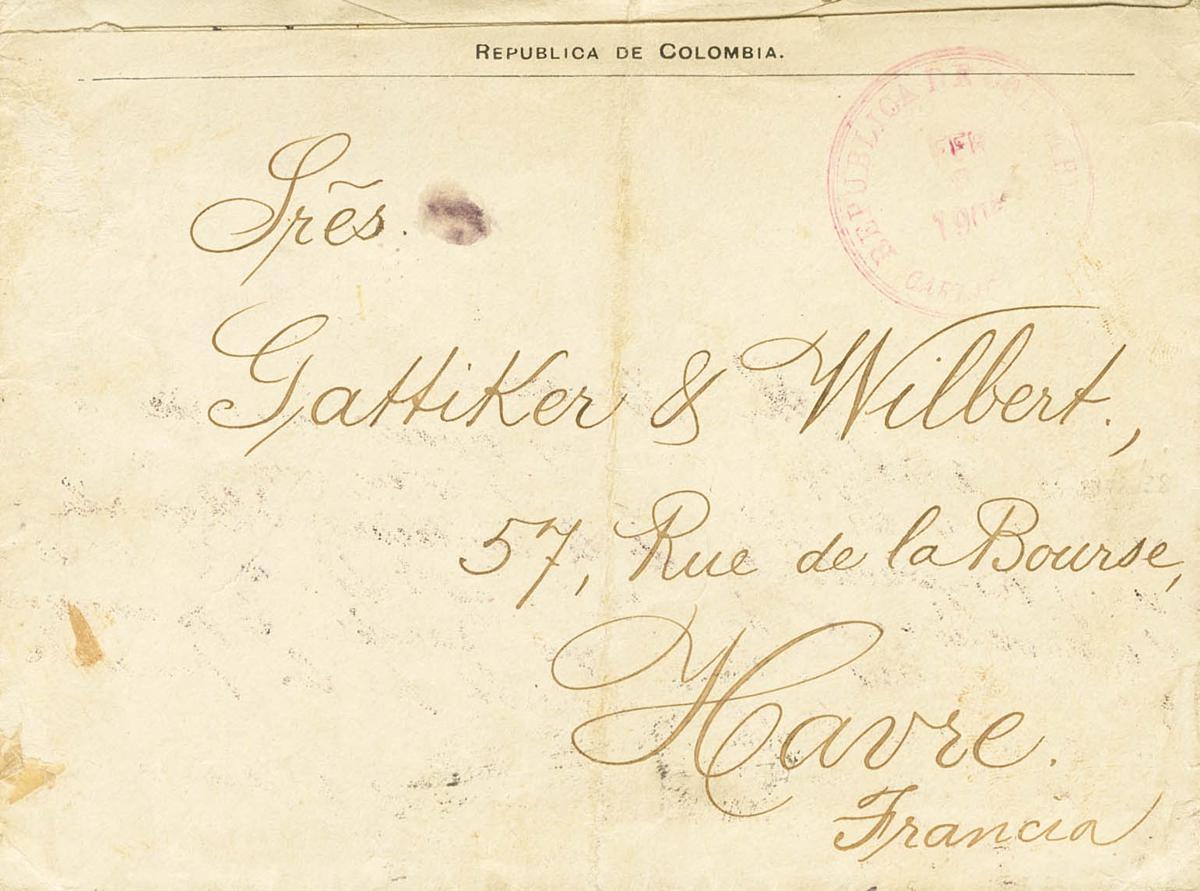 REPUBLICA DE COLOMBIA.
REPUBLICA DE
FEB
Srẽs.
Gattiker & Wilbert.,
57, Rue de la Bourse,
Havre.
Francia